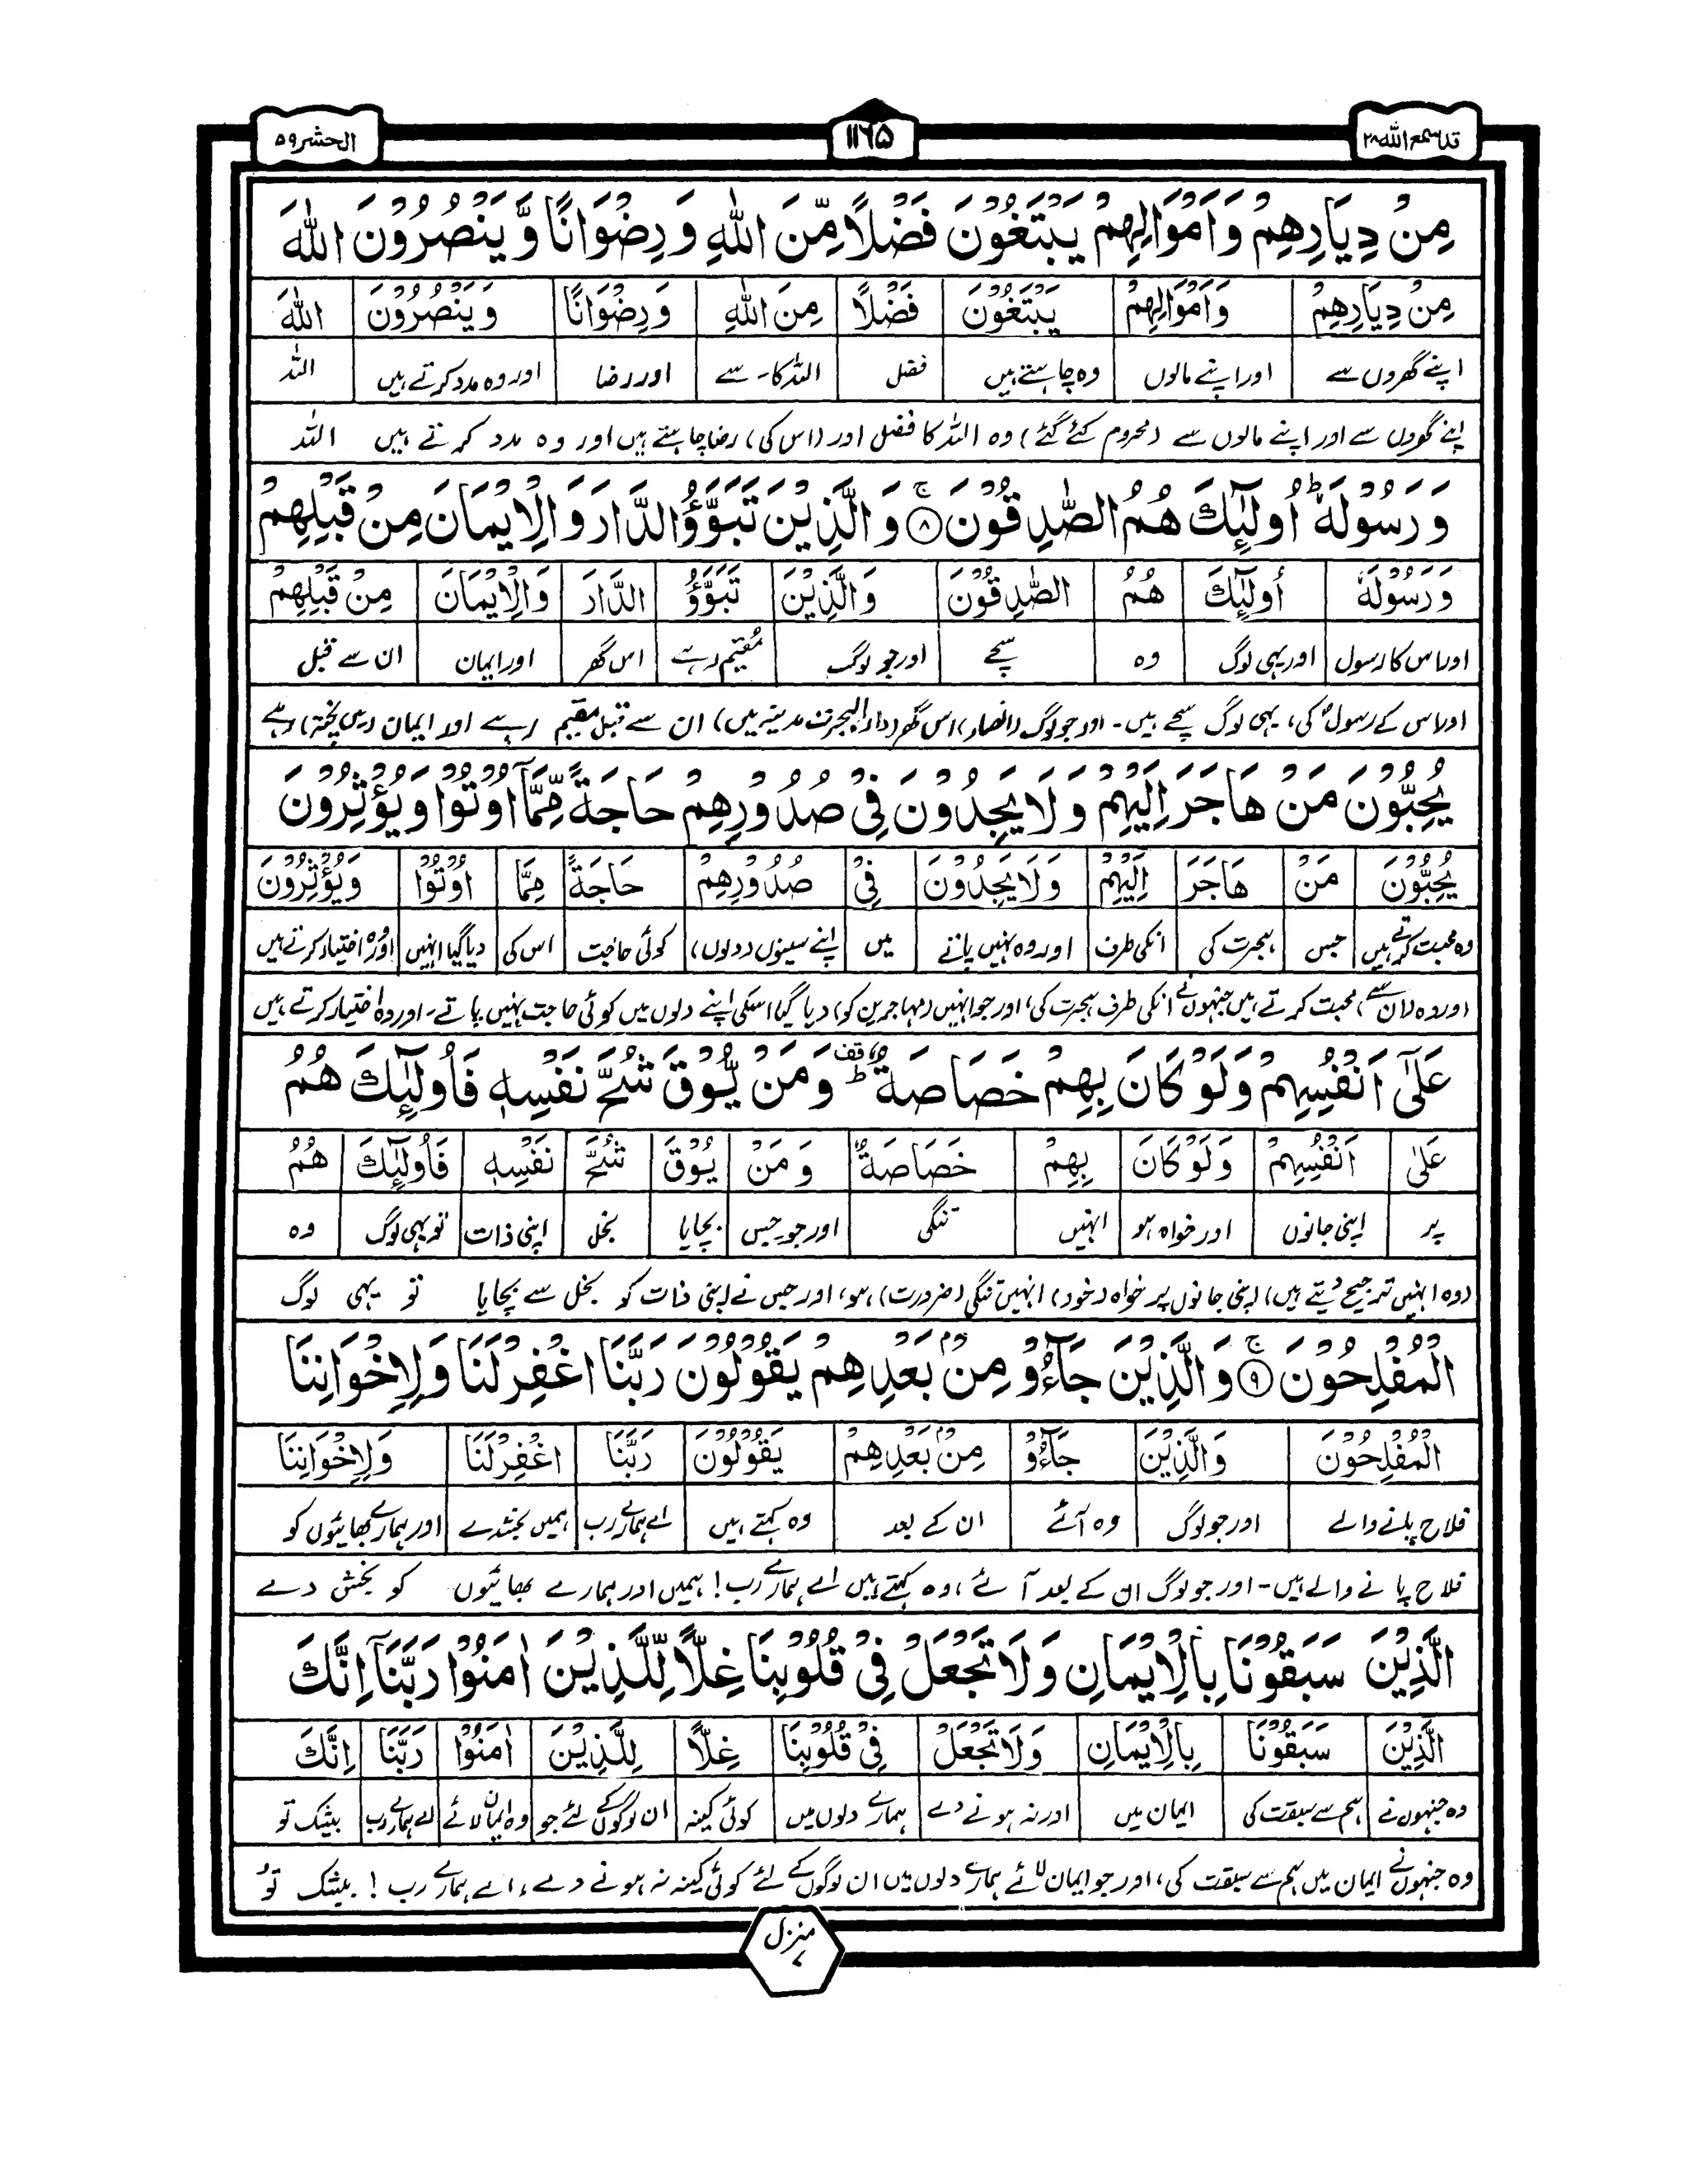 قد سمع الله ۲۸
۱۱۶۵
الحشر ۵۹
مِنْ دِيَارِهِمْ وَاَمْوَالِهِمْ يَبْتَغُوْنَ فَضْلًا مِّنَ اللّٰهِ وَرِضْوَانًا وَّيَنْصُرُوْنَ اللّٰهَ
مِنْ دِيَارِهِمْ وَاَمْوَالِهِمْ يَبْتَغُوْنَ فَضْلًا مِنَ اللّٰهِ وَرِضْوَانًا وَيَنْصُرُوْنَ اللّٰهَ
اپنے گھروں سے اور اپنے مالوں وہ چاہتے ہیں فضل اللہ کا۔ سے اور رضا اور وہ مدد کرتے ہیں اللہ
اپنے گھروں سے اور اپنے مالوں سے (محروم کئے گئے) وہ اللہ کا فضل اور (اس کی) رضا چاہتے ہیں اور وہ مدد کرتے ہیں اللہ
وَرَسُوْلَهٗ ؕ اُولٰٓئِكَ هُمُ الصّٰدِقُوْنَ ۚ ۸ وَالَّذِيْنَ تَبَوَّؤُ الدَّارَ وَالْاِيْمَانَ مِنْ قَبْلِهِمْ
وَرَسُوْلَهٗ اُولٰٓئِكَ هُمُ الصّٰدِقُوْنَ وَالَّذِيْنَ تَبَوَّؤُ الدَّارَ وَالْاِيْمَانَ مِنْ قَبْلِهِمْ
اور اس کا رسول اور یہی لوگ وہ سچے اور جو لوگ مقیم رہے اس گھر اور ایمان ان سے قبل
اور اس کے رسولؐ کی، یہی لوگ سچے ہیں۔ اور جو لوگ (انصار) اس گھر (دارالہجرت مدینہ میں) ان سے قبل مقیم رہے اور ایمان (میں پختہ) رہے
يُحِبُّوْنَ مَنْ هَاجَرَ اِلَيْهِمْ وَلَا يَجِدُوْنَ فِيْ صُدُوْرِهِمْ حَاجَةً مِّمَّآ اُوْتُوْا وَيُؤْثِرُوْنَ
يُحِبُّوْنَ مَنْ هَاجَرَ اِلَيْهِمْ وَلَا يَجِدُوْنَ فِيْ صُدُوْرِهِمْ حَاجَةً مِمَّا اُوْتُوْا وَيُؤْثِرُوْنَ
وہ محبت کرتے ہیں جس ہجرت کی انکی طرف اور وہ نہیں پاتے میں اپنے سینوں (دلوں) کوئی حاجت اس کی دیا گیا انہیں اور وہ اختیار کرتے ہیں
اور وہ (ان سے) محبت کرتے ہیں جنہوں نے انکی طرف ہجرت کی، اور جو انہیں (مہاجرین کو) دیا گیا اسکی اپنے دلوں میں کوئی حاجت نہیں پاتے۔ اور وہ اختیار کرتے ہیں
عَلٰٓى اَنْفُسِهِمْ وَلَوْ كَانَ بِهِمْ خَصَاصَةٌ ؕ قف وَمَنْ يُّوْقَ شُحَّ نَفْسِهٖ فَاُولٰٓئِكَ هُمُ
عَلٰى اَنْفُسِهِمْ وَلَوْ كَانَ بِهِمْ خَصَاصَةٌ وَمَنْ يُوْقَ شُحَّ نَفْسِهٖ فَاُولٰٓئِكَ هُمُ
پر اپنی جانوں اور خواہ ہو انہیں تنگی اور جو جس بچایا بخل اپنی ذات تو یہی لوگ وہ
(وہ انہیں ترجیح دیتے ہیں) اپنی جانوں پر خواہ (خود) انہیں تنگی (ضرورت) ہو، اور جس نے اپنی ذات کو بخل سے بچایا تو یہی لوگ
الْمُفْلِحُوْنَ ۚ ۹ وَالَّذِيْنَ جَآءُوْ مِنْۢ بَعْدِهِمْ يَقُوْلُوْنَ رَبَّنَا اغْفِرْ لَنَا وَلِاِخْوَانِنَا
الْمُفْلِحُوْنَ وَالَّذِيْنَ جَآءُوْ مِنْۢ بَعْدِهِمْ يَقُوْلُوْنَ رَبَّنَا اغْفِرْ لَنَا وَلِاِخْوَانِنَا
فلاح پانے والے اور جو لوگ وہ آئے ان کے بعد وہ کہتے ہیں اے ہمارے رب ہمیں بخشدے اور ہمارے بھائیوں کو
فلاح پانے والے ہیں۔ اور جو لوگ ان کے بعد آئے، وہ کہتے ہیں اے ہمارے رب! ہمیں اور ہمارے بھائیوں کو بخش دے
الَّذِيْنَ سَبَقُوْنَا بِالْاِيْمَانِ وَلَا تَجْعَلْ فِيْ قُلُوْبِنَا غِلًّا لِّلَّذِيْنَ اٰمَنُوْا رَبَّنَآ اِنَّكَ
الَّذِيْنَ سَبَقُوْنَا بِالْاِيْمَانِ وَلَا تَجْعَلْ فِيْ قُلُوْبِنَا غِلًّا لِلَّذِيْنَ اٰمَنُوْا رَبَّنَا اِنَّكَ
وہ جنہوں نے ہم سے سبقت کی ایمان میں اور نہ ہونے دے ہمارے دلوں میں کوئی کینہ ان لوگوں کے لئے جو وہ ایمان لائے اے ہمارے رب بیشک تو
وہ جنہوں نے ایمان میں ہم سے سبقت کی، اور جو ایمان لائے ہمارے دلوں میں ان لوگوں کے لئے کوئی کینہ نہ ہونے دے، اے ہمارے رب! بیشک تو
منزل ۷